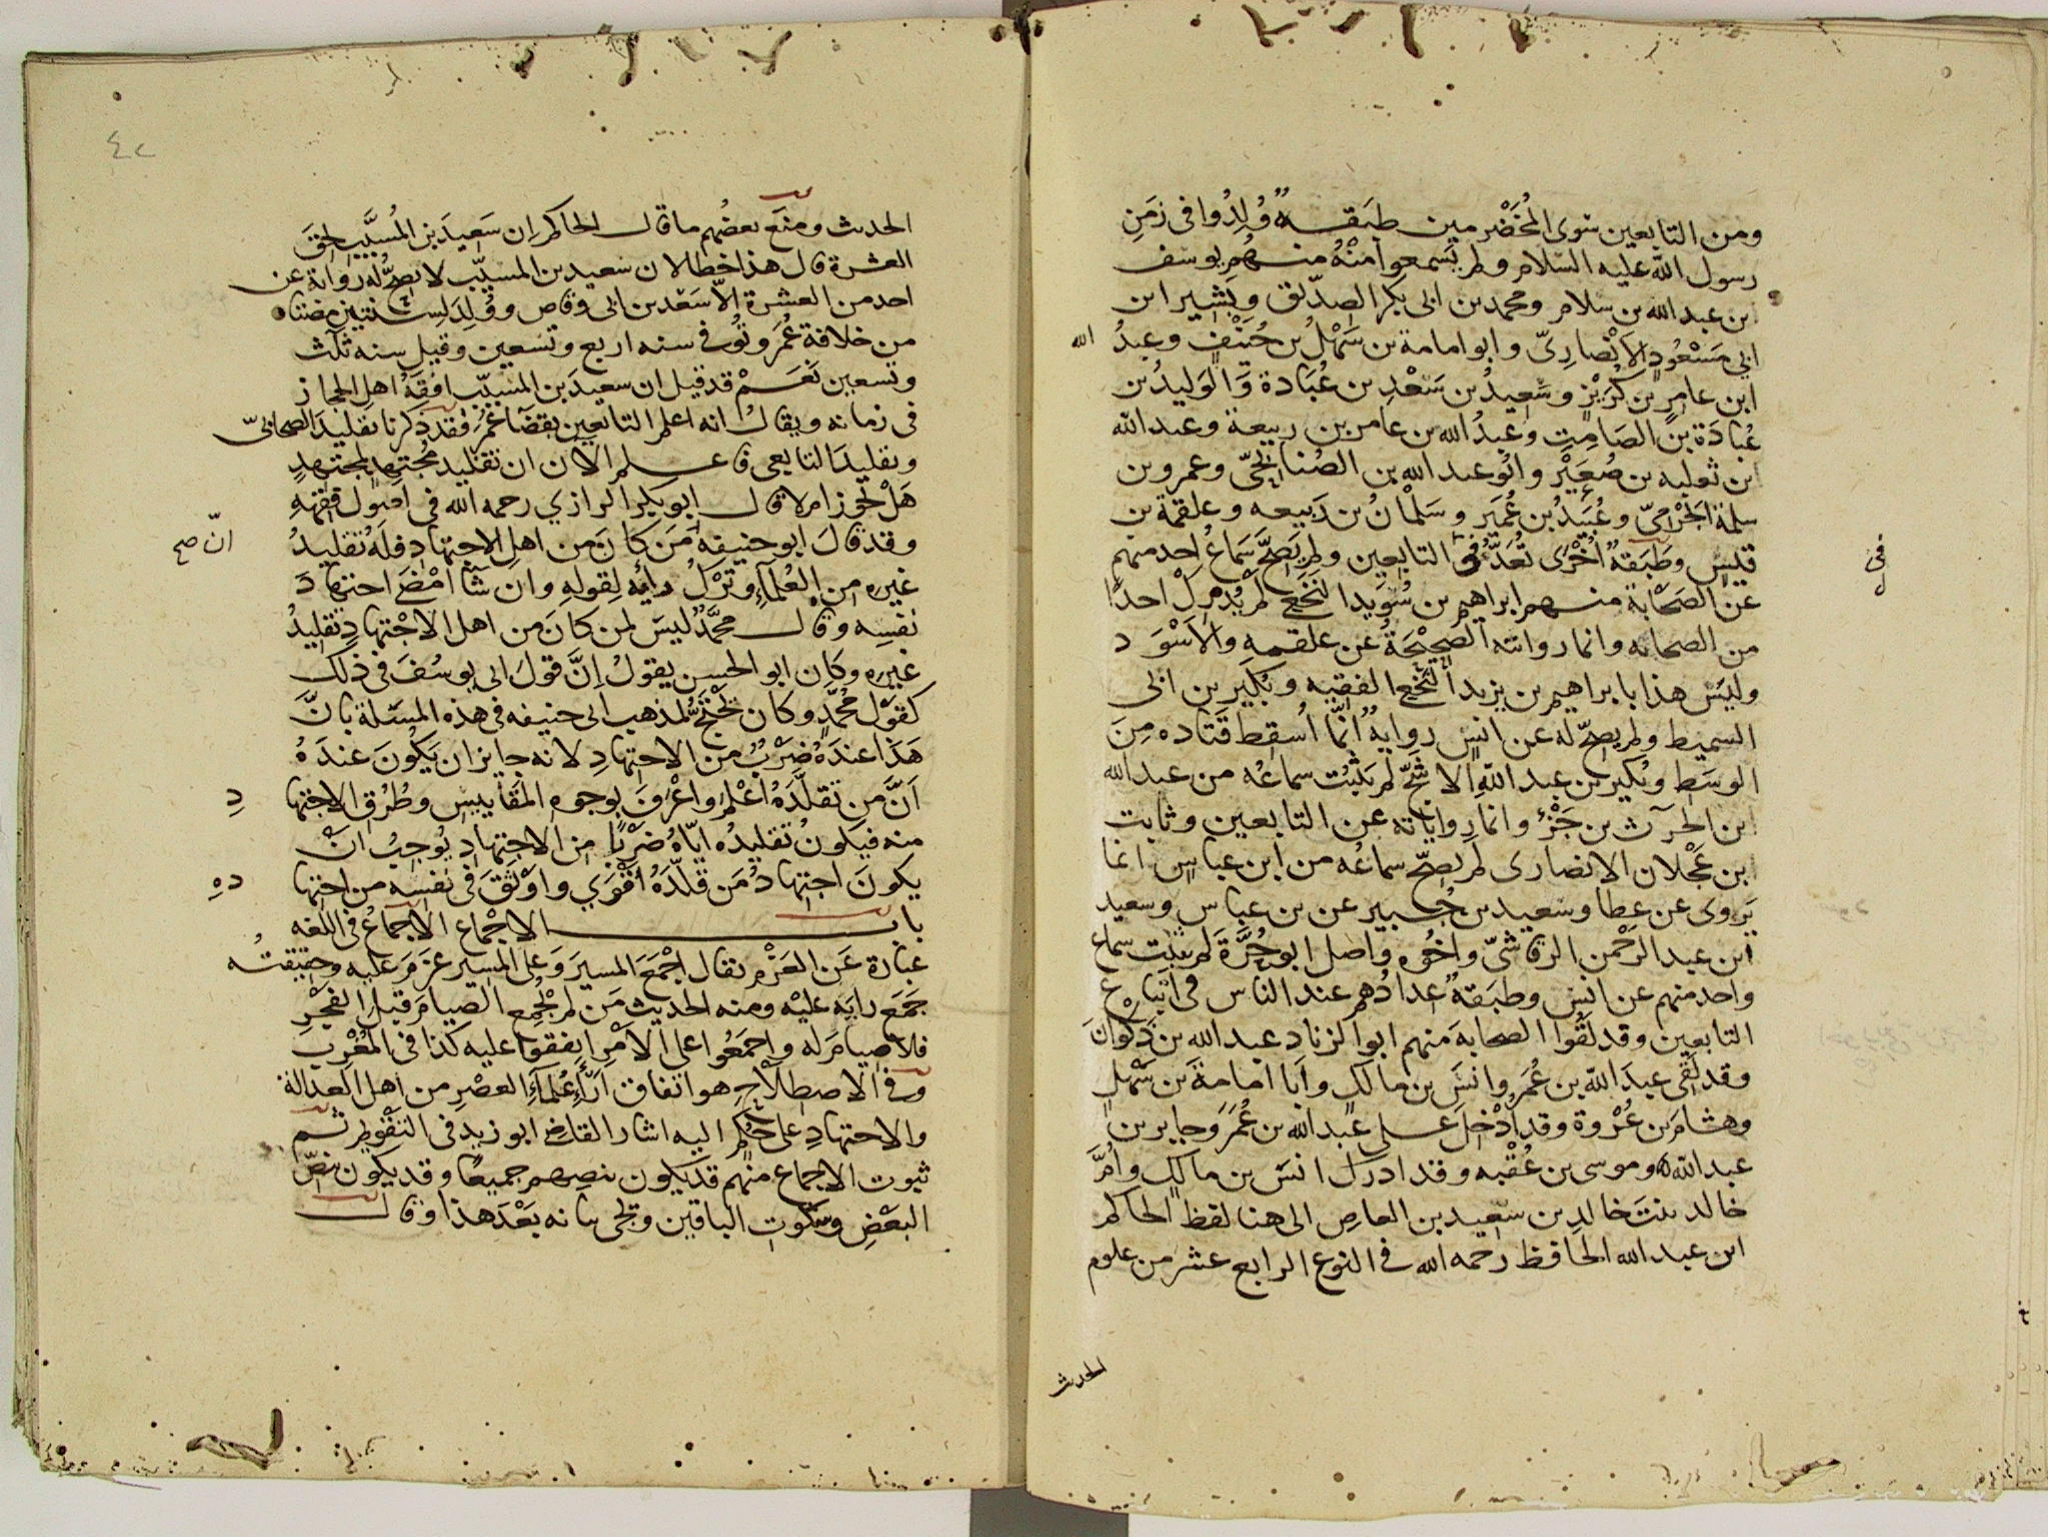 ومن التابعين سوى المُخَضْرمين طبقةٌ وُلِدُوا فى زمَنِ
رسول الله عليه السّلام ولم يَسمعوا مِنْهُ منهم يوسف
ابن عبد الله بن سلام ومحمد بن ابى بكر الصدّيق وبَشِير ابن
ابي مَسْعُودٍ الاَنصارِىّ وابو امامة بن سَهْلُ بن حُنَيْفٍ وعبدُ الله
ابن عامِرٍ بن كُرَيْزٍ وسَعِيدُ بن سَعْدِ بن عُبَادة وَالوَليدُ بن
عُبادَة بن الصَامِتِ وعبدُ الله بن عامر بن ربيعة وعبد الله
ابن ثعلبه بن صُعَيْر وابُو عبد الله بن الصُنابحىّ وعمرو بن
سلمة الجَرْمىّ وعُبَيدُ بن عُمَيرٍ وسَلْمانُ بن رَبيعه وعلقمة بن
قيس وطَبَقةٌ اُخْرَى تُعَدُّ فى التابعين ولم يَصحَّ سَمَاعُ احد منهم
فى
عن الصَحَابة منهم ابراهيم بن سُوَيد النَخَعِىّ لم يُدْرِكْ احدًا
من الصحابه وانما روايته الصحِيْحَةُ عن علقمهِ والاَسْوَد
وليَس هذا بابراهيم بن يزيد النخَعِىّ الفقيه وبُكَير بن ابى
السميط ولم يصحّ له عن انسٍ روايةٌ انَّما اُسقِط قَتاده مِنَ
الوسَط وبُكير بن عبد اللهِ الاشَجّ لم يَثْبُت سماعُه من عبد الله
ابن الحرث بن جَزْءٍ وانما رواياته عن التابعين وثابت
ابن عَجْلان الانصارى لم يصحّ سماعُه من ابن عباسٍ انما
يَروى عن عطا وسَعيد بن جُبير عن بن عباس وسعيد
ابن عبد الرَحْمن الرقاشىّ واخُوه واصل ابو حُرَّةَ لم يثبت سماع
واحد منهم عن انسٍ وطبَقةٌ عدادُهم عند الناس فى اَتباع
التابعين وقد لَقُوا الصحابةَ منهم ابو الزناد عبد الله بن ذَكْوانَ
وقد لَقى عبدَ اللهِ بن عُمَر وانسَ بن مالكٍ وابا امامةَ بن سَهْلٍ
وهشام بن عُرْوة وقد اُدْخِلَ على عبد الله بن عُمَرَ وجابر بن
عبد الله وموسى بن عُقْبه وقد ادرك انسَ بن مالكٍ واُمَّ
خالد بنتَ خالدِ بن سَعِيد بن العاصِ الى هنا لفظ الحاكم
ابن عبد الله الحافظ رحمه الله فى النوع الرابع عشر من علوم
الحديث
الحديث ومنَع بعضُهم ما قال الحاكم اِن سَعِيدَ بن المُسَيَّب لحِقَ
العشرة قال هذا خطا لان سعيد بن المسيّب لا يصحُّ له رواية عن
احد من العشرة اِلاّ سَعْد بن ابى وقاص ووُلِدَ لسنتين مضتا
من خلافة عُمَر وتُوُفى سنه اربع وتسعين وقيل سنه ثَلث
وتسعين نَعَمْ قد قيل ان سعيدَ بن المسيّب افقَهُ اهل الحجاز
فى زمانه ويقالُ انه اعلم التابعين بقضَا عُمَر فقد ذكرنا تقليدَ الصحابىّ
وتقليدَ التابعى فاعلم الآن ان تقليد مُجتهدٍ لمجتهدٍ
هَلْ يجوز ام لا قال ابو بكر الرازي رحمه الله فى اصول فِقهِهِ
وقد قالَ ابو حنيفةَ مَن كانَ من اهلِ الاجتهادِ فلَهُ تقليدُ
انّ صح
غيره من العُلماَءِ وتَرْكُ رايه لقولهِ وان شآ اَمْضَى اجتهادَ
نفسِه وقال محمَّدٌ ليسَ لمن كانَ من اهل الاجْتهادِ تقليدُ
غيره وكان ابو الحسن يقولُ اِنَّ قولَ ابى يوسُفَ فى ذلك
كقَوْل محمّدٍ وكان يحْتَجُّ لمذهب ابى حنيفه فى هذه المسَلة بانَّ
هَذا عندَهُ ضَرْبٌ من الاجتهادِ لانه جايز ان يَكُونَ عندَهُ
اَنَّ مَن يُقلِّدَهُ اَعْلَم واَعْرَفَ بوجوه المَقاييس وطُرُق الاجتهادِ
منه فيكونُ تقليدُه ايّاهُ ضَرْبًا من الاجتهادِ يُوجِبُ انْ
يكونَ اجتهادُ مَن قَلَّدَهُ اَقْوَي واَوْثَقَ فى نفسِه من اجتهادهِ
باب الاجْماع الاِجماعُ فى اللغه
عبَارة عَن العَزْم يقال اَجْمَعَ المسيرَ وَعَلى المَسير عَزَمَ عليه وحقيقتُه
جَمَعَ رايَه عليْه ومنه الحديث مَن لم يُجْمِع الصيامَ قبل الفجْرِ
فلا صيامَ له واجمَعُوا على الاَمْرِ اتفقوا عليه كذا فى المُغْرِب
وفى الاصطلاحِ هو اتفاق اَراءِ عُلماَءِ العصْرِ من اهل العدالة
والاجتهادِ على حُكمٍ اليه اشار القاضى ابو زيد فى التقْويم ثم
ثبوت الاجماع منهم قد يكون بنصِهم جميعًا وقد يكون بنصِّ
البَعْضِ وسكوتِ الباقين ويجى بيانه بَعْدَ هذا وقال